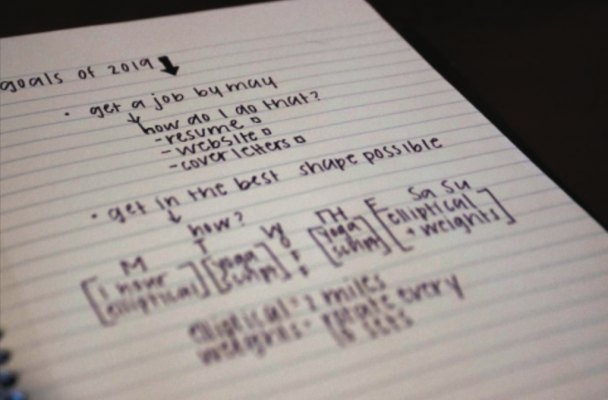 goals of 2019 ⬇
• get a job by may
↳ how do I do that?
- resume □
- website □
- coverletters □
• get in the best shape possible
↓ how?
M T W TH F Sa Su
[1 hour [yoga [yoga [elliptical
elliptical] sculpt] sculpt] + weights]
elliptical - 2 miles
weights - rotate every
sets